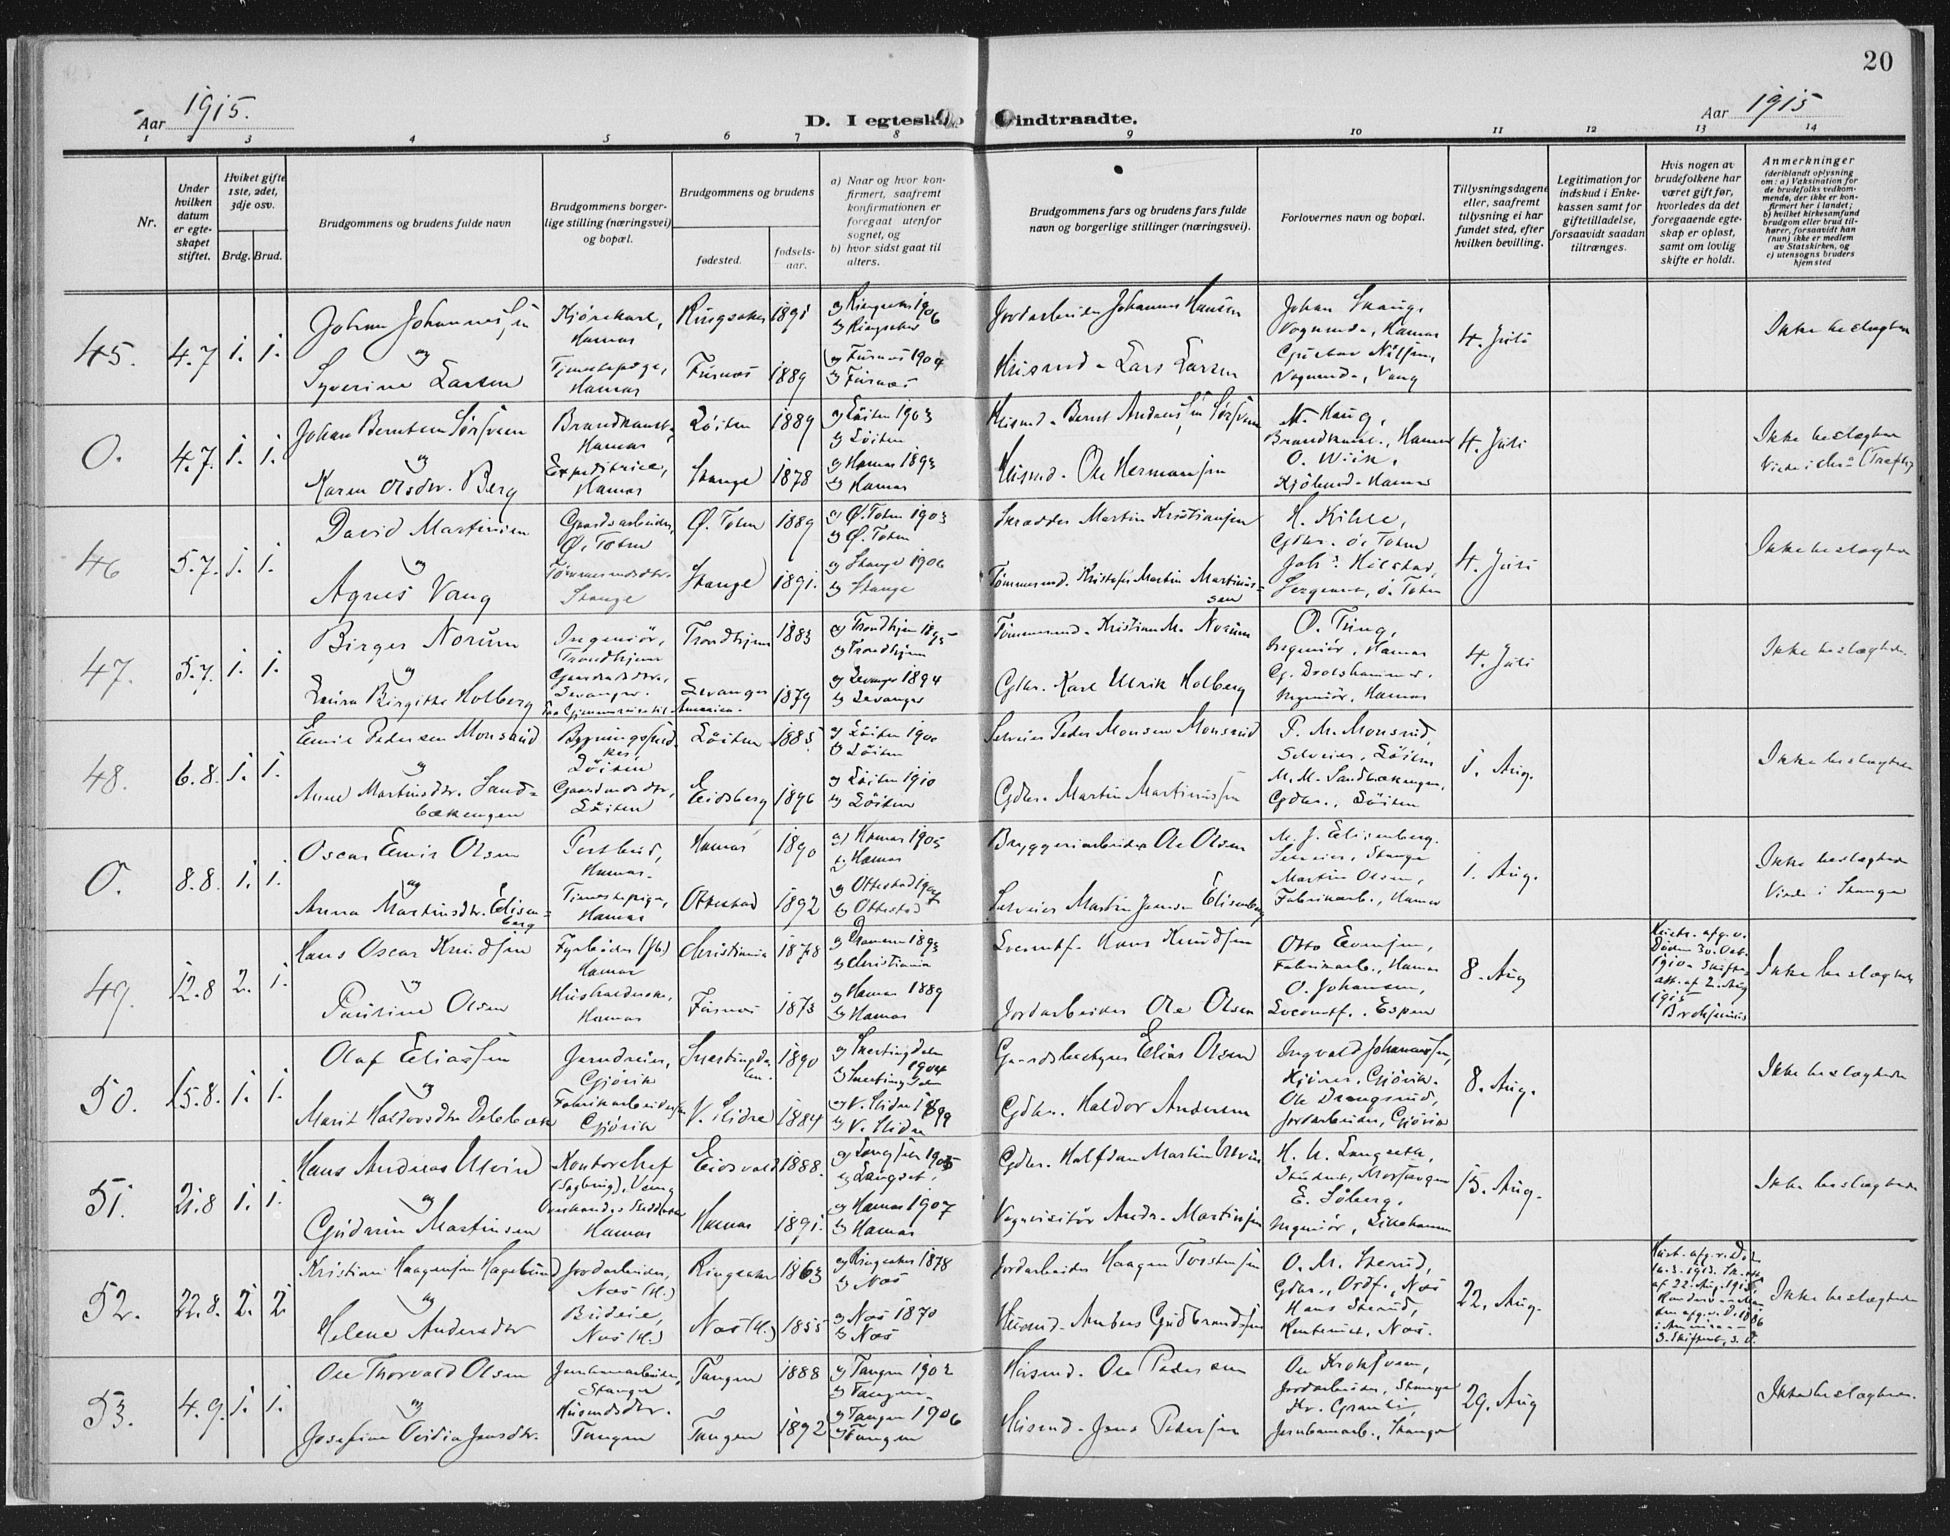 20
Aar 1915.
D. I egteskab indtraadte.
Aar 1915
1 2 3 4 5 6 7 8 9 10 11 12 13 14
Nr.
Under hvilken datum er egteskapet stiftet.
Hviket gifte 1ste, 2det, 3dje osv.
Brdg. Brud.
Brudgommens og brudens fulde navn
Brudgommens og brudens borgerlige stilling (næringsvei) og bopæl.
Brudgommens og brudens
fødested.
fødselsaar.
a) Naar og hvor konfirmert, saafremt konfirmationen er foregaat utenfor sognet, og
b) hvor sidst gaat til alters.
Brudgommens fars og brudens fars fulde navn og borgerlige stillinger (næringsvei).
Forlovernes navn og bopæl.
Tillysningsdagene eller, saafremt tillysning ei har fundet sted, efter hvilken bevilling.
Legitimation for indskud i Enkekassen samt for giftetilladelse, forsaavidt saadan tiltrænges.
Hvis nogen av brudefolkene har været gift før, hvorledes da det foregaaende egteskap er opløst, samt om lovlig skifte er holdt.
Anmerkninger
(deriblandt oplysning om: a) Vaksination for de brudefolks vedkommende, der ikke er konfirmert her i landet; b) hvilket kirkesamfund brudgom eller brud tilhører, forsaavidt han (hun) ikke er medlem av Statskirken, og c) utensogns bruders hjemsted
45. 4.7 1. 1. Johan Johannessen Kjørekarl, Hamar Ringsaker 1891 a) Ringsaker 1906 b) Ringsaker Jordarbeider Johannes Hansen Johan Skaug, Vognmd., Hamar 4. Juli Ikke beslægtede
og
Syverine Larsen Tjenestepige, Hamar Furnes 1889 a) Furnes 1904 b) Furnes Husmd. Lars Larsen Gustav Nilsen, Vognmd., Vang
0. 4.7. 1. 1. Johan Berntsen Sørsveen Hamar Løiten 1889 a) Løiten 1903 b) Løiten Husmd. Bernt Andreassen Sørsveen M. Haug, Hamar 4. Juli Ikke beslægtede
og
Karen Olsdtr. Berg Expeditrice, Hamar Stange 1878 a) Hamar 1893 b) Hamar Husmd. Ole Hermansen O. Wiik, Kjøbmd. Hamar
46 5.7. 1. 1. David Martinsen Gaardsarbeider, Ø. Toten Ø. Toten 1889 a) Ø. Toten 1903 b) Ø. Toten Skrædder Martin Kristiansen H. Kihle, Gdbr. Ø. Toten 4. Juli Ikke beslægtede
og
Agnes Vang Tømmermdsdtr. Stange Stange 1891. a) Stange 1906 b) Stange Tømmermd. Kristofer Martin Martinussen Sergeant, Ø. Toten
47. 5.7. 1. 1. Birger Norum Ingeniør, Trondhjem Trondhjem 1883 a) Trondhjem b) Trondhjem Tømmermd. Kristian M. Norum O. Ting, Ingeniør, Hamar 4. Juli Ikke beslægtede
og
Laura Birgitte Holberg Levanger. Levanger 1879 a) Levanger 1894 b) Levanger Gdbr. Karl Ulrik Holberg Ingeniør, Hamar
48. 6.8. 1. 1. Emil Pedersen Monsrud Løiten Løiten 1885 a) Løiten 1900 b) Løiten Selveier Peder Monsen Monsrud P. M. Monsrud, Selveier, Løiten 1. Aug. Ikke beslægtede
og
Anne Martinsdtr. Sandbækengen Gaardmdsdtr, Løiten Eidsberg 1896 a) Løiten 1910 b) Løiten Gdbr. Martin Martinussen M. M. Sandbækengen, Gdbr., Løiten
0. 8.8. 1. 1. Oscar Emil Olsen Postbud, Hamar. Hamar 1890 a) Hamar 1905 b) Hamar Bryggeriarbeider Ole Olsen M. J. Elisenberg. Selveier, Stange 1. Aug. Ikke beslægtede
Viede i Stange
og
Anna Martinsdtr. Elisenberg Tjenestepige, Hamar Ottestad 1892 a) Ottestad 1907 b) Ottestad Selveier Martin Jensen Elisenberg Martin Olsen, Fabrikarb., Hamar
49. 12.8 2. 1. Hans Oscar Knudsen Fyrbøder (Jb) Hamar Christiania 1878 a) Drammen 1893 b) Christiania Locomtf. Hans Knudsen Otto Evensen, Fabrikarb., Hamar 8. Aug Ikke beslægtede
og
Pauline Olsen Husholderske, Hamar Furnes 1873 a) Hamar 1889 b) Hamar Jordarbeider Ole Olsen O. Johansen, Locomtf. Espen
50. 15.8. 1. 1. Olaf Eliassen Gjøvik Snertingdalen. 1890 a) Snertingdalen 1904 b) Snertingdalen Gaardsbestyrer Elias Olsen Ingvald Johannessen, Kjører, Gjøvik. 8. Aug. Ikke beslægtede
og
Marit Haldorsdtr Dalebæk Fabrikarbeiderske Gjøvik V. Slidre 1884 a) V. Slidre 1899 b) V. Slidre Gdbr. Haldor Andersen Ole Drengsrud, Jordarbeider, Gjøvik
51. 21.8 1. 1. Hans Andreas Ulvin Kontorchef Vang Eidsvold 1888. a) Langset 1903 b) Langset, Gdbr. Halfdan Martin Ulvin H. U. Langseth, Student 15. Aug. Ikke beslægtede
og
Gudrun Martinsen Hamar Hamar 1891. a) Hamar 1907 b) Hamar Vognvisitør Andr. Martinsen E. Solberg, Ingeniør, Lillehammer
52. 22.8. 2. 2 Kristian Haagensen Hagelund Jordarbeider, Nes (H.) Ringsaker 1863 a) Ringsaker 1878 b) Nes Jordarbeider Haagen Torstensen O. M. Sterud, Gdbr., Ordf., Nes 22. Aug. Ikke beslægtede
og
Helene Andersdtr Budeie, Nes (H.) Nes (H.) 1855 a) Nes 1870 b) Nes Husmd. Anders Gudbrandsen Hans Sterud, Nes.
53. 4.9. 1. 1. Ole Thorvald Olsen Jernbanearbeider, Stange Tangen 1888 a) Tangen 1902 b) Tangen Husmd. Ole Pedersen Ole Kroksveen, Jordarbeider, Stange 29. Aug Ikke beslægtede.
og
Josefine Ovidia Jensdtr. Husmdsdtr. Tangen Tangen 1892 a) Tangen 1906 b) Tangen Husmd. Jens Petersen Jernbanearb., Stange